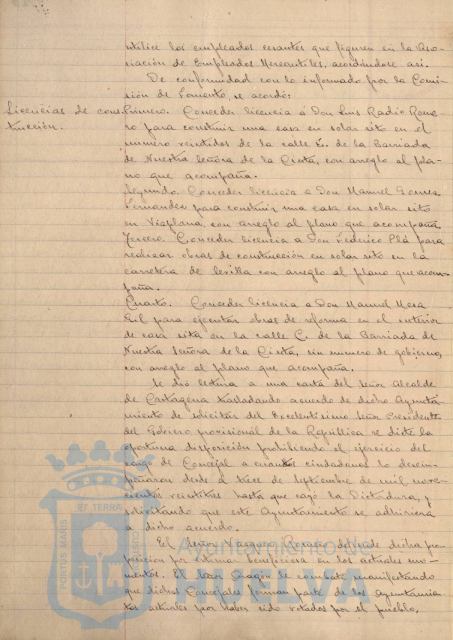 utilice los empleados cesantes que figuren en la Aso-
ciación de Empleados Mercantiles, acordándose así.
De conformidad con lo informado por la Comi-
sión de Fomento, se acordó:
Licencias de cons-
trucción.
Primero. Conceder licencia á Don Luis Radio Rome-
ro para construir una casa en solar sito en el
número veintidos de la calle L. de la Barriada
de Nuestra Señora de la Cinta, con arreglo al pla-
no que acompaña.
Segundo. Conceder licencia a Don Manuel Gómez
Fernandez para construir una casa en solar sito
en Viaplana, con arreglo al plano que acompaña.
Tercero. Conceder licencia a Don Federico Plá para
realizar obras de construcción en solar sito en la
carretera de Sevilla con arreglo al plano que acom-
paña.
Cuarto. Conceder licencia a Don Manuel Mesa
Gil para ejecutar obras de reforma en el interior
de casa sita en la calle C. de la Barriada de
Nuestra Señora de la Cinta, sin numero de gobierno,
con arreglo al plano que acompaña.
Se dió lectura a una carta del Señor Alcalde
de Cartagena trasladando acuerdo de dicho Ayunta-
miento de solicitar del Excelentísimo Señor Presidente
del Gobierno provisional de la República se dicte la
oportuna disposición prohibiendo el ejercicio del
cargo de Concejal a cuantos ciudadanos lo desem-
peñaron desde el trece de Septiembre de mil nove-
cientos veintitres hasta que cayó la Dictadura, y
solicitando que este Ayuntamiento se adhiriera
a dicho acuerdo.
El Señor Vazquez Romero defiende dicha pro-
posición por estimar beneficiosa en los actuales mo-
mentos. El Señor la combate manifestando
que dichos Concejales forman parte de los Ayuntamien-
tos actuales por haber sido votados por el pueblo,
PORTUS MARIS
ET TERRAE
CUSTODIA
Ayuntamiento de
HUELVA